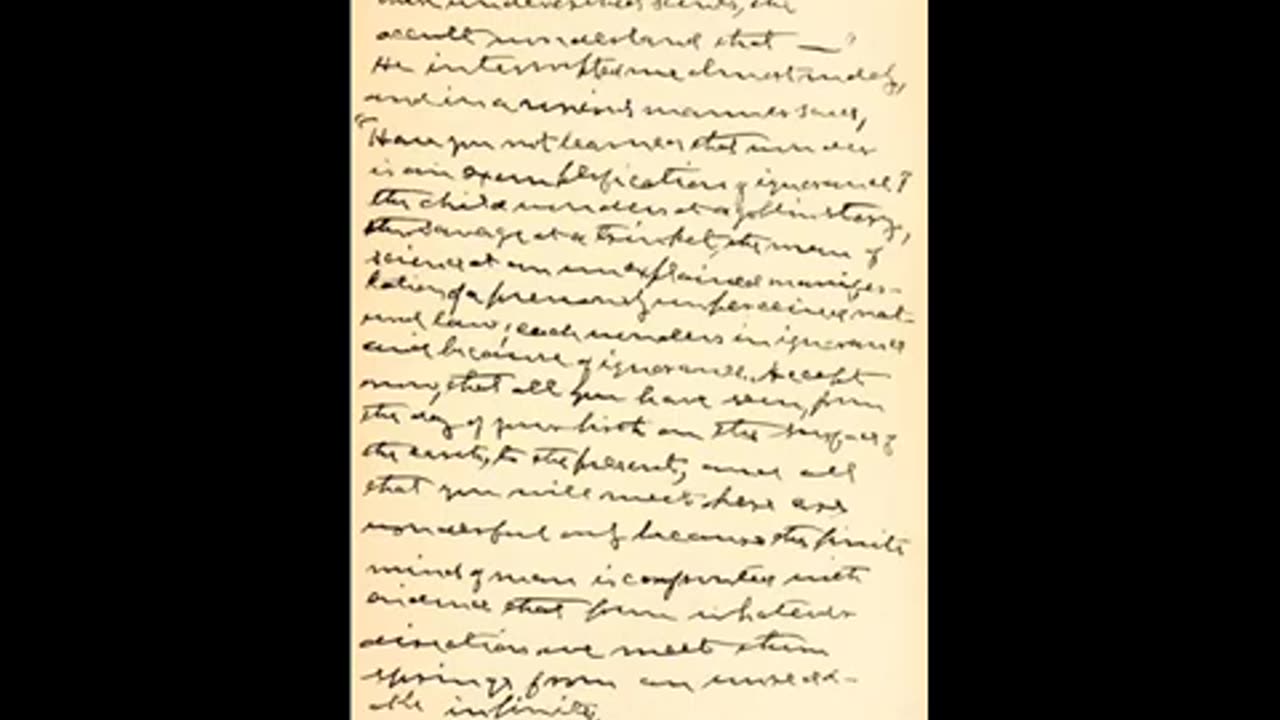 the
occult wonderland that —"
He interrupted me almost rudely,
and in a serious manner said,
"Have you not learned that wonder
is an exemplification of ignorance?
the child wonders at a goblin story,
the savage at a trinket, the man of
science at an unexplained manifes-
tation of a previously unperceived nat-
ural law, each wonders in ignorance
and because of ignorance. Accept
now, that all you have seen, from
the day of your birth on the surface of
the earth, to the present, and all
that you will meet here are
wonderful only because the finite
mind of man is confronted with
evidence that from whatever
direction we meet them
springs from an unreach-
able infinity.